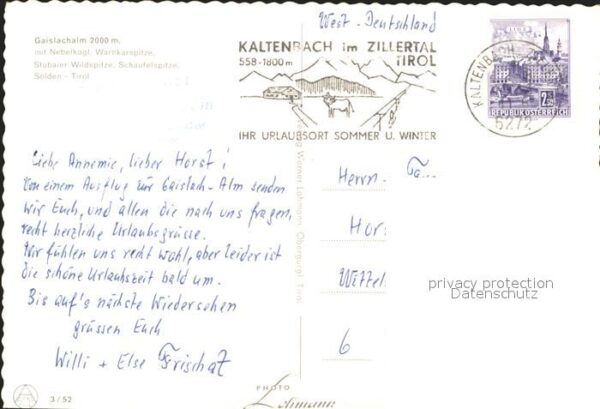 Gaislachalm 2000 m,
mit Nebelkogl, Warnkarspitze,
Stubaier Wildspitze, Schaufelspitze,
Sölden - Tirol
West-Deutschland
KALTENBACH im ZILLERTAL
558-1800 m TIROL
IHR URLAUBSORT SOMMER U. WINTER
KALTENBACH
6272
2.50
REPUBLIK ÖSTERREICH
Liebe Annemie, lieber Horst!
Von einem Ausflug zur Gaislach-Alm senden
wir Euch, und allen die nach uns fragen,
recht herzliche Urlaubsgrüsse.
Wir fühlen uns recht wohl, aber leider ist
die schöne Urlaubszeit bald um.
Bis auf's nächste Wiedersehen
grüssen Euch
Willi + Else Frischat
Verlag Werner Lohmann, Obergurgl, Tirol
Herrn
Hors
Wittel
6
privacy protection
Datenschutz
3/52
PHOTO
Lohmann